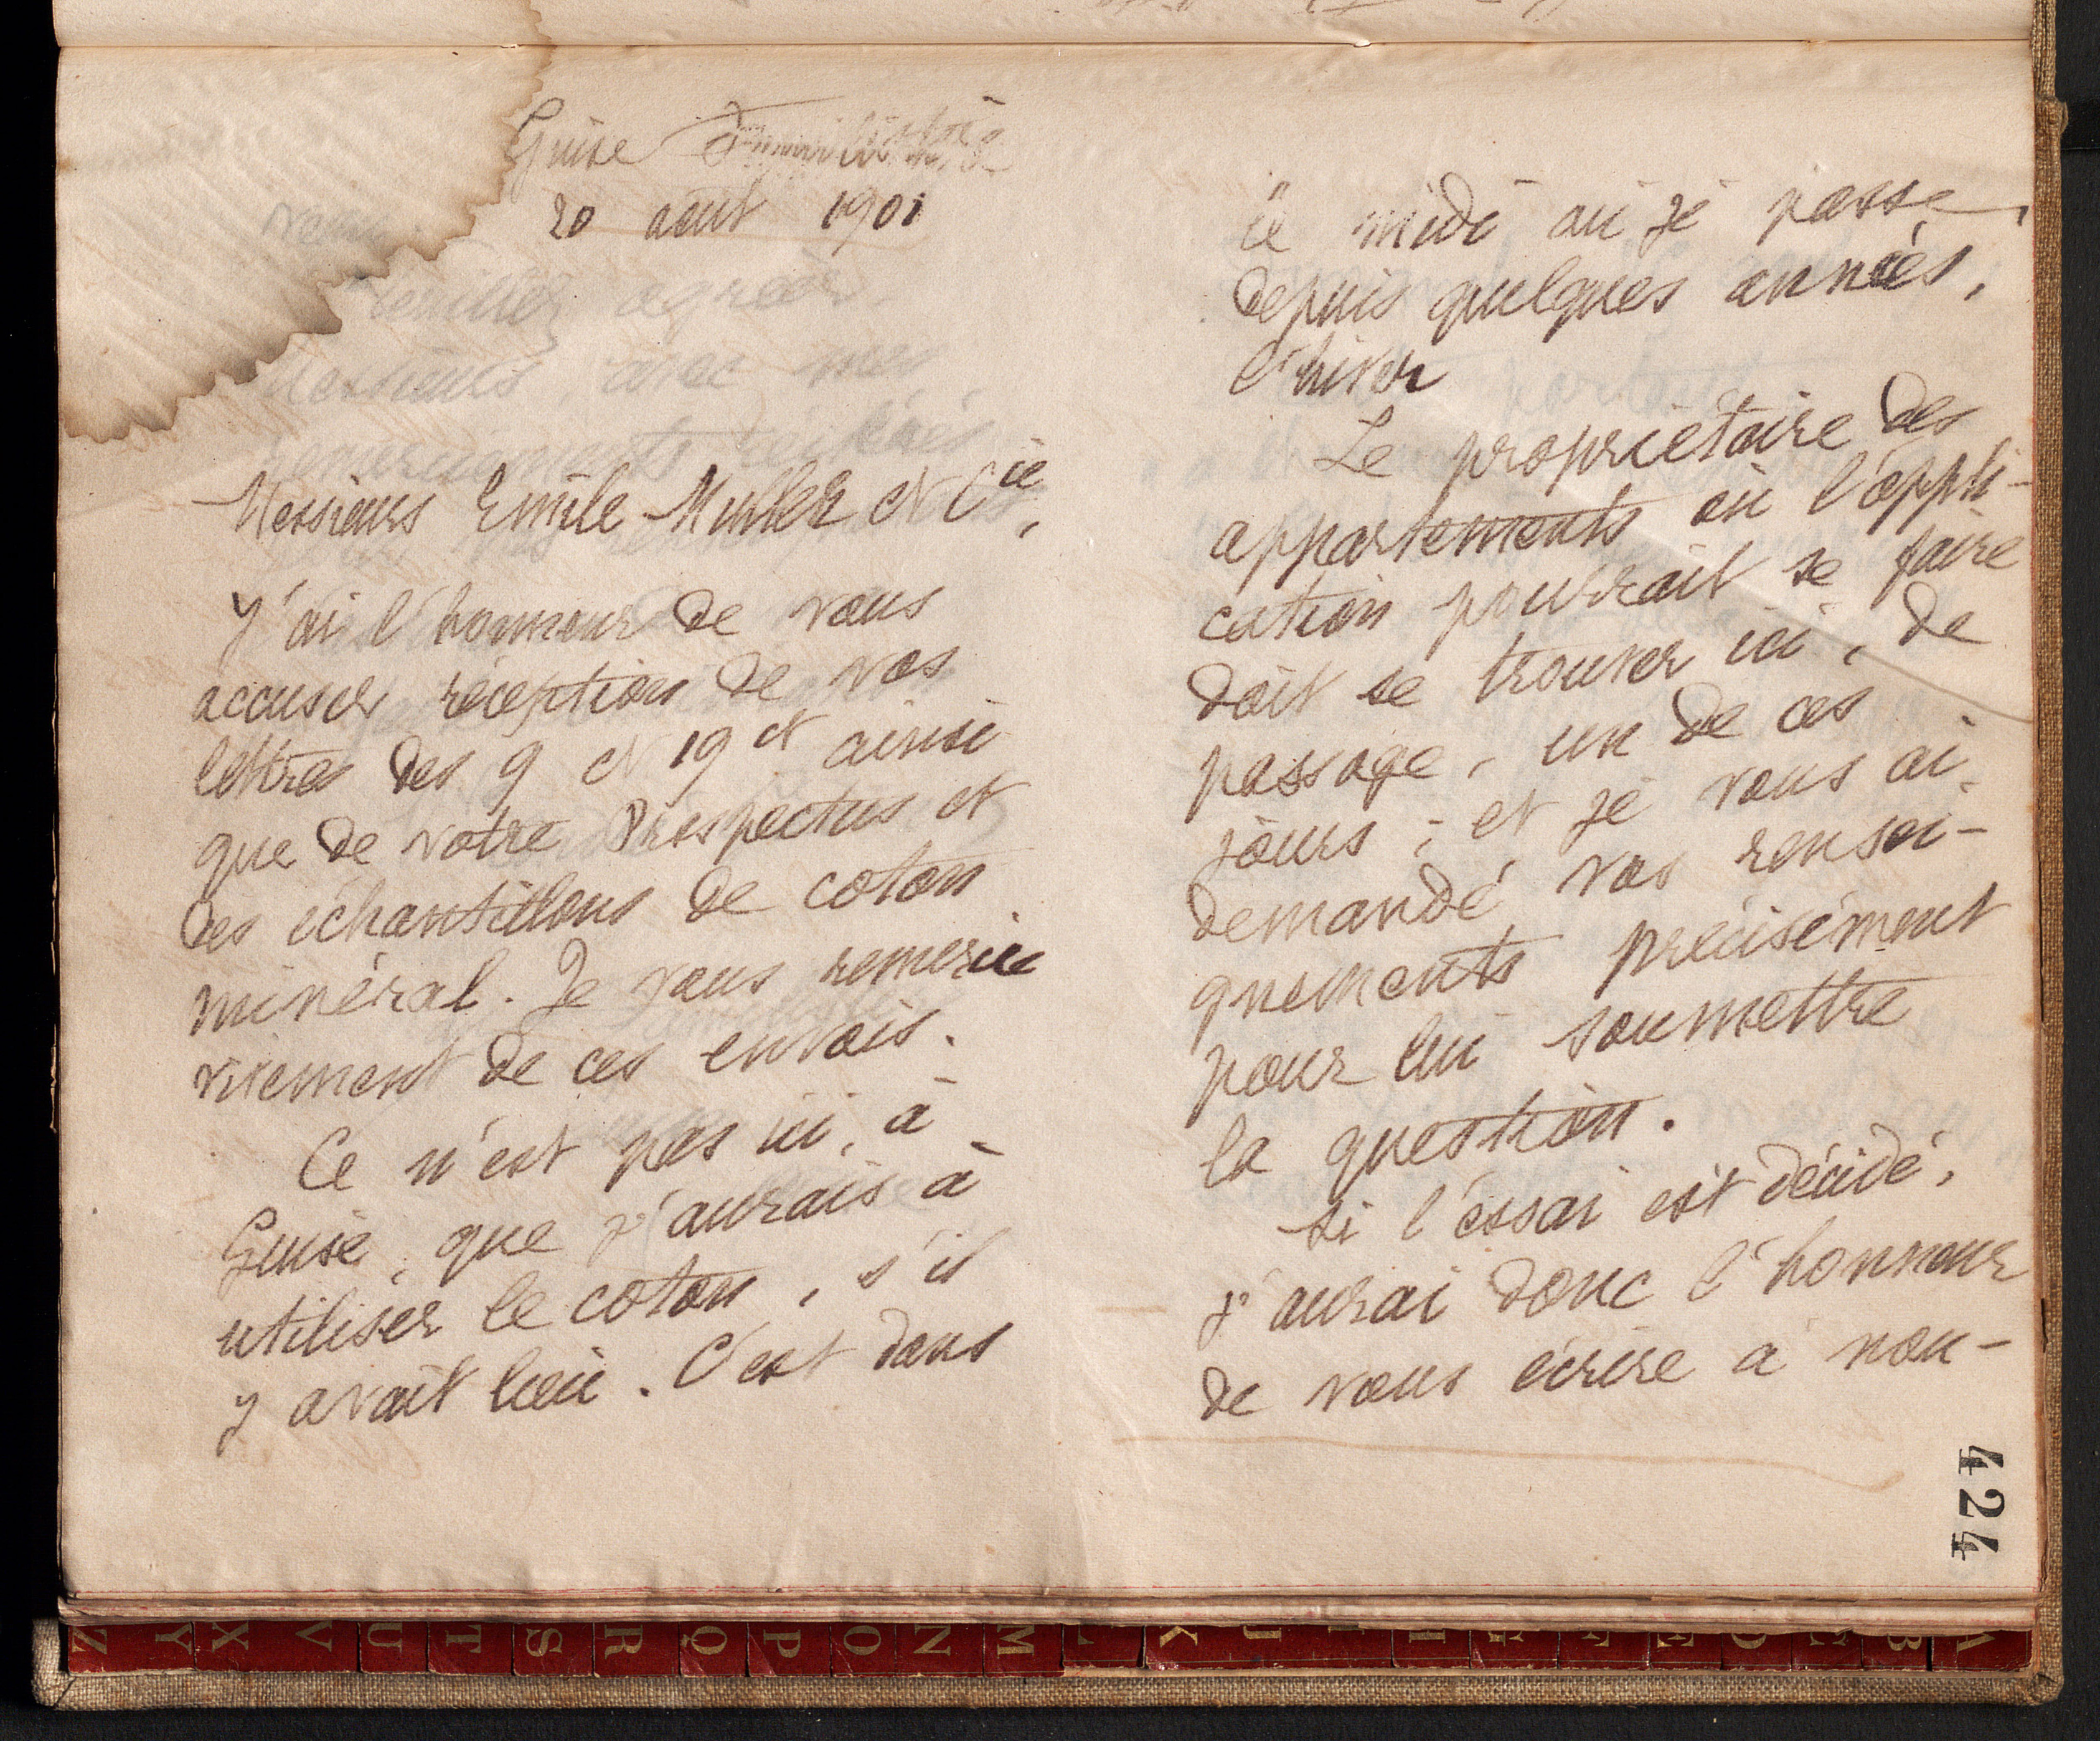 Guise Familistère
20 août 1901
Messieurs Emile Muller et Cie,
J'ai l'honneur de vous
accuser réception de vos
lettres des 9 et 19 ct ainsi
que de votre Prospectus et
des échantillons de coton
minéral. Je vous remercie
vivement de ces envois.
Ce n'est pas ici, à
Guise, que j'aurais à
utiliser le coton, s'il
y avait lieu. C'est dans
le midi où je passe,
depuis quelques années,
l'hiver
Le propriétaire des
appartements où l'appli-
cation pourrait se faire
doit se trouver ici, de
passage, un de ces
jours ; et je vous ai
demandé vos rensei-
gnements précisément
pour lui soumettre
la question.
Si l'essai est décidé,
j'aurai donc l'honneur
de vous écrire à nou-
424
veuillez agréer
Messieurs, avec mes
remerciements réitérés
Z Y X V U T S R Q P O N M L K J I H G F E D C B A